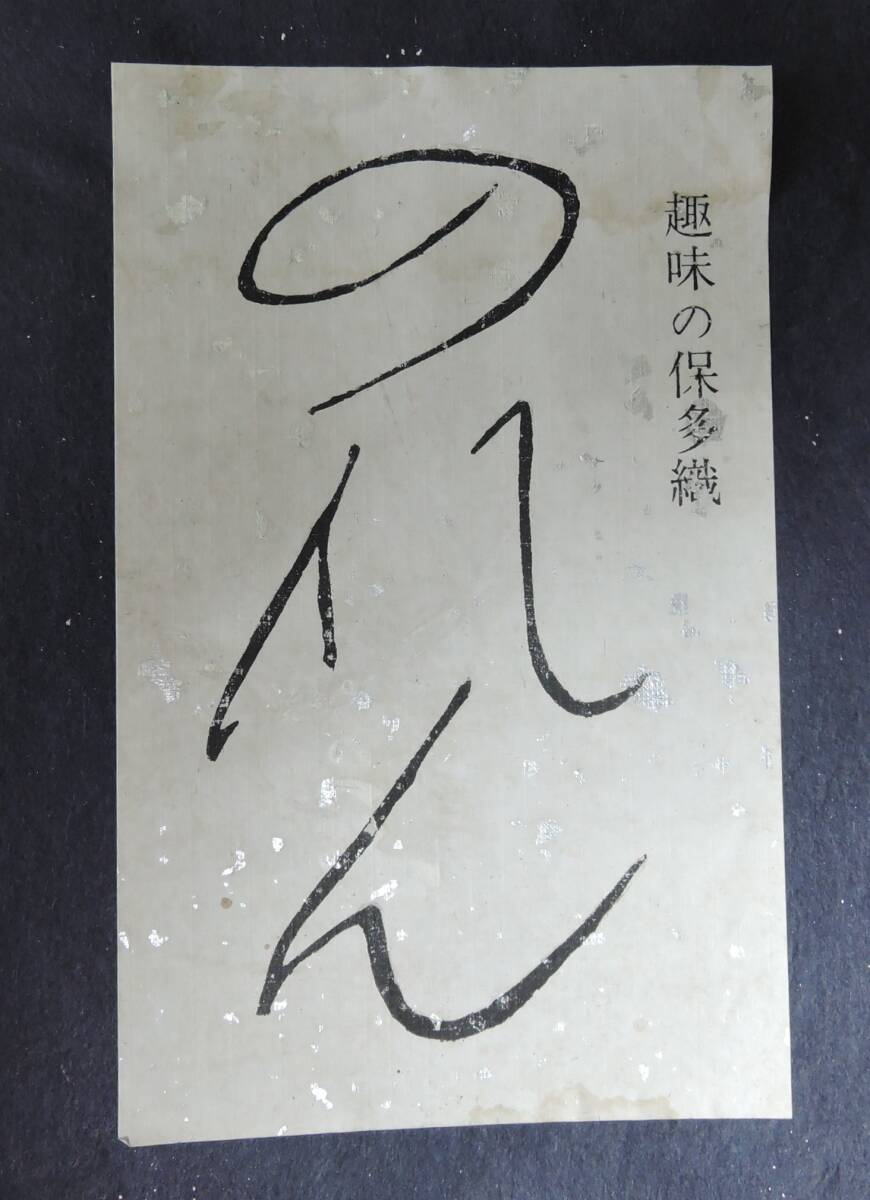 趣味の保多織
のれん